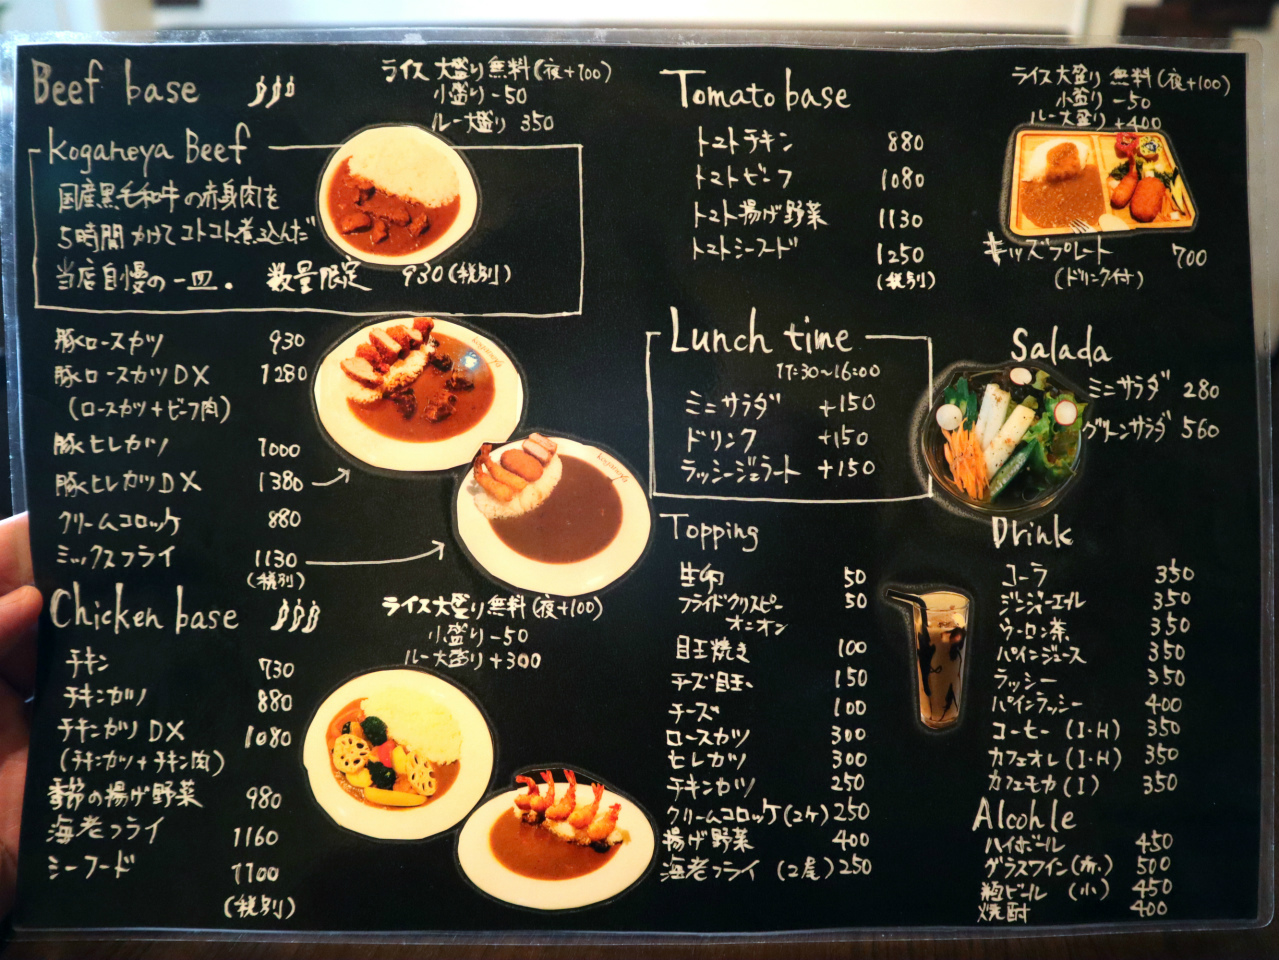 Beef base
ライス大盛り無料(夜+100)
小盛り-50
ルー大盛り 350
Koganeya Beef
国産黒毛和牛の赤身肉を
5時間かけてコトコト煮込んだ
当店自慢の一皿。 数量限定 930(税別)
豚ロースカツ 930
豚ロースカツDX 1280
(ロースカツ+ビーフ肉)
豚ヒレカツ 1000
豚ヒレカツDX 1380
クリームコロッケ 880
ミックスフライ 1130
(税別)
Chicken base
ライス大盛り無料(夜+100)
小盛り-50
ルー大盛り+300
チキン 730
チキンカツ 880
チキンカツDX 1080
(チキンカツ+チキン肉)
季節の揚げ野菜 980
海老フライ 1160
シーフード 1100
(税別)
koganeya
koganeya
Tomato base
ライス大盛り無料(夜+100)
小盛り-50
ルー大盛り+400
トマトチキン 880
トマトビーフ 1080
トマト揚げ野菜 1130
トマトシーフード 1250
(税別)
キッズプレート 700
(ドリンク付)
Lunch time
11:30~16:00
ミニサラダ +150
ドリンク +150
ラッシージェラート +150
Salada
ミニサラダ 280
グリーンサラダ 560
Topping
生卵 50
フライドクリスピー 50
オニオン
目玉焼き 100
チーズ目玉 150
チーズ 100
ロースカツ 300
ヒレカツ 300
チキンカツ 250
クリームコロッケ(2ケ) 250
揚げ野菜 400
海老フライ (2尾) 250
Drink
コーラ 350
ジンジャーエール 350
ウーロン茶 350
パインジュース 350
ラッシー 350
パインラッシー 400
コーヒー(I・H) 350
カフェオレ(I・H) 350
カフェモカ(I) 350
Alcohle
ハイボール 450
グラスワイン(赤) 500
瓶ビール (小) 450
焼酎 400